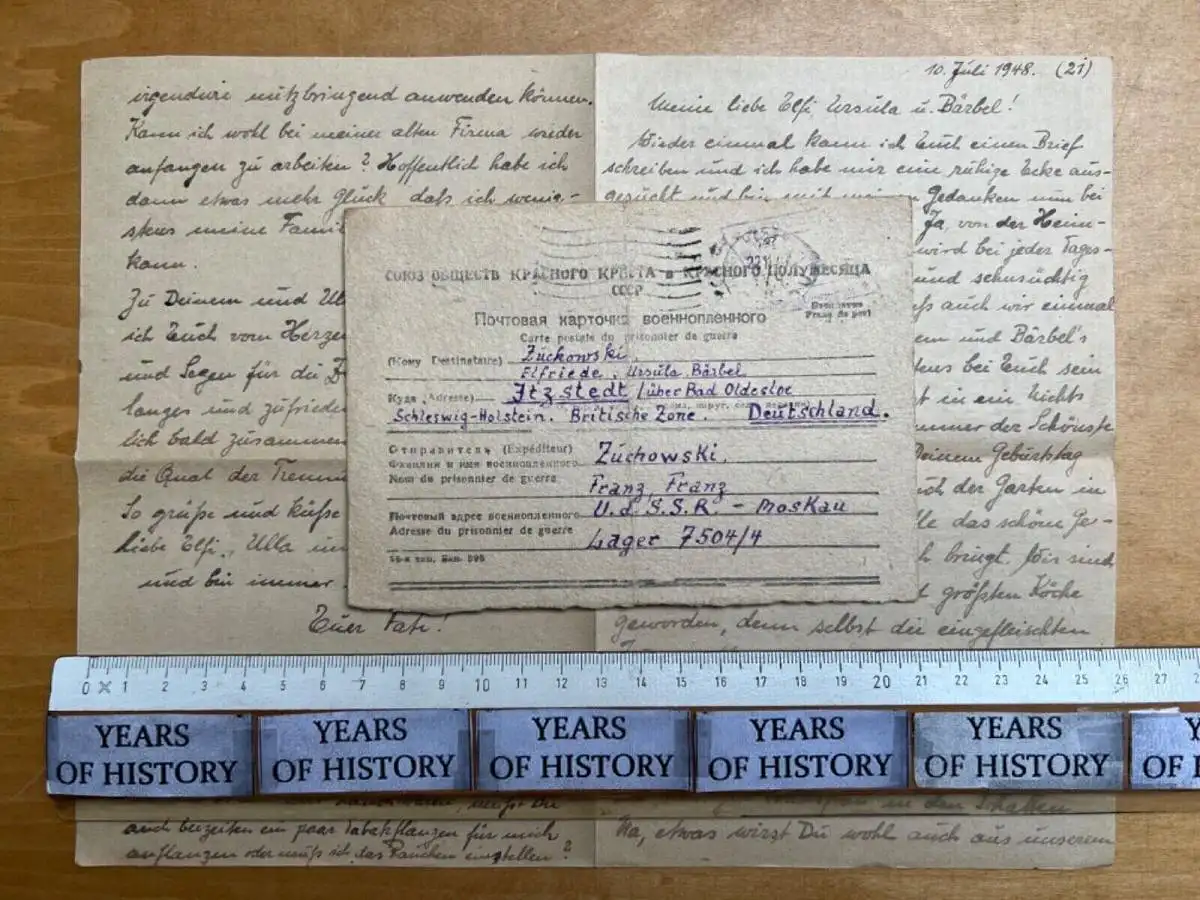 irgendwie nutzbringend anwenden können.
Kann ich wohl bei meiner alten Firma wieder
anfangen zu arbeiten? Hoffentlich habe ich
dann etwas mehr Glück, daß ich wenig-
stens meine Famil
kann.
Zu Deinem und Ull
ich Euch vom Herze
und Segen für die
langes und zufriede
lich bald zusammen
die Qual der Trennu
So grüße und küße
liebe Elfi, Ulla un
und bin immer
Euer Vati!
auch beizeiten ein paar Tabakpflanzen für mich
anpflanzen oder muß ich das Rauchen einstellen?
10. Juli 1948. (21)
Meine liebe Elfi, Ursula u. Bärbel!
Wieder einmal kann ich Euch einen Brief
schreiben und ich habe mir eine ruhige Ecke aus-
gesucht und bin mit Gedanken nun bei
Ja, von der Heim-
wird bei jeder Tages-
und sehnsüchtig
auch wir einmal
und Bärbel's
bei Euch sein
t in ein Nichts
mmer der Schönste
Deinem Geburtstag
ich der Garten in
lle das schöne Ge-
bringt. Wir sind
t größten Köche
geworden, denn selbst die eingefleischten
in den Schatten
Na, etwas wirst Du wohl auch aus unserem
СОЮЗ ОБЩЕСТВ КРАСНОГО КРЕСТА и КРАСНОГО ПОЛУМЕСЯЦА
СССР
Почтовая карточка военнопленного
Carte postale du prisonnier de guerre
(Кому Destinataire) Zuchowski
Elfriede, Ursula, Bärbel
Куда (Adresse) Itzstedt / über Bad Oldesloe
Schleswig-Holstein. Britische Zone. Deutschland.
Отправитель (Expéditeur) Zuchowski,
Фамилия и имя военнопленного
Nom du prisonnier de guerre Franz, Franz
Почтовый адрес военнопленного U.d.S.S.R. - Moskau
Adresse du prisonnier de guerre Lager 7504/4
0 1 2 3 4 5 6 7 8 9 10 11 12 13 14 15 16 17 18 19 20 21 22 23 24 25 26 27
YEARS OF HISTORY
YEARS OF HISTORY
YEARS OF HISTORY
YEARS OF HISTORY
YEARS OF HISTORY
Y
OF